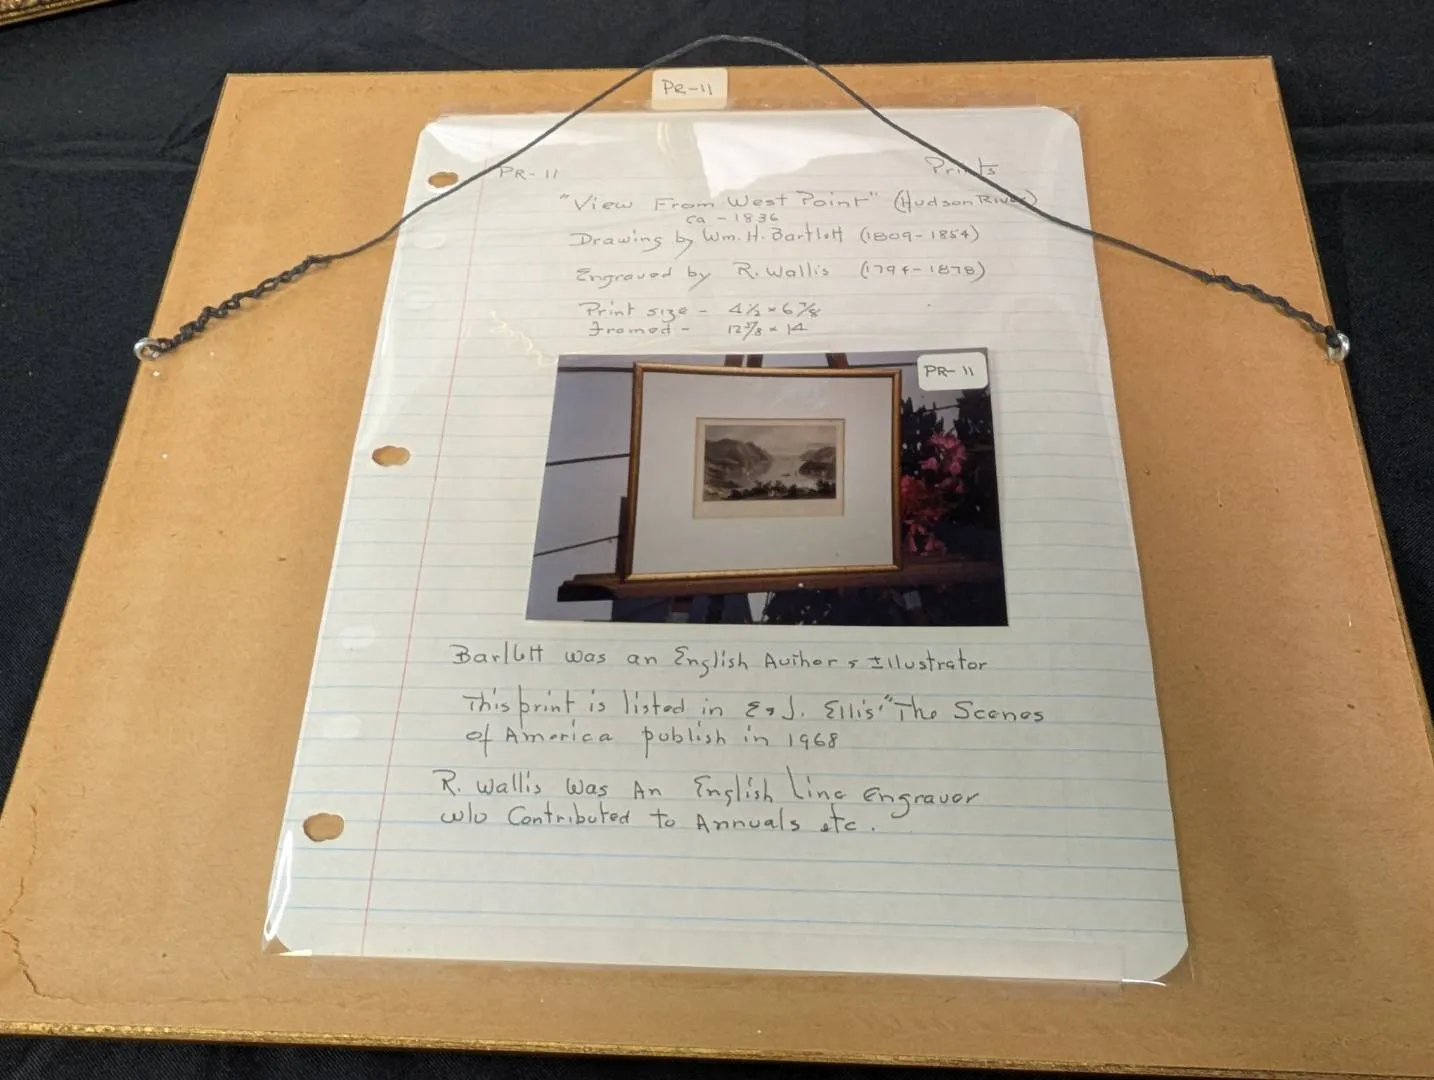 PR-11
PR-11 Prints
"View From West Point" (Hudson River)
ca - 1836
Drawing by Wm. H. Bartlett (1809-1854)
Engraved by R. Wallis (1794-1878)
Print size - 4½ x 6⅞
Framed - 12⅞ x 14
PR-11
Bartlett was an English Author & Illustrator
This print is listed in E & J. Ellis' "The Scenes
of America publish in 1968
R. Wallis Was An English Line Engraver
who Contributed to Annuals etc.